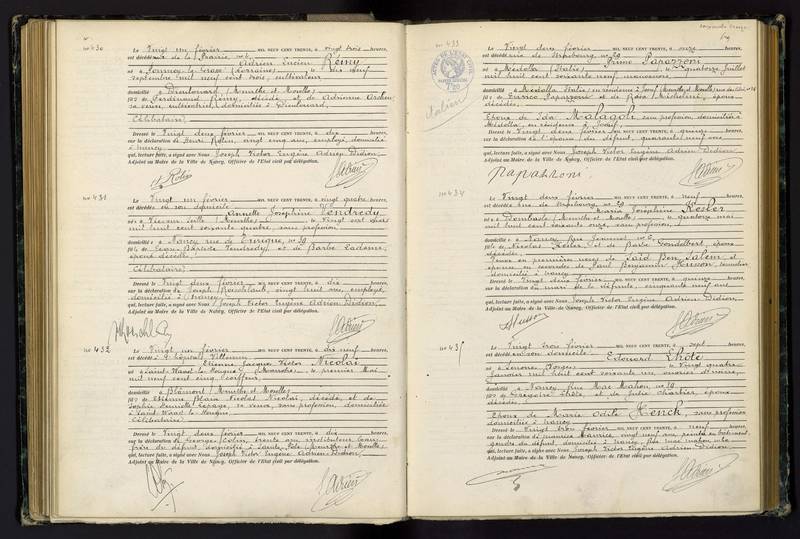 No 430
Le Vingt un février MIL NEUF CENT TRENTE, à vingt trois heures,
est décédé rue de la Prairie
Adrien Lucien Remy
né à (Lorraine) le dix neuf
septembre mil neuf cent trois, cultivateur
domicilié à Dieulouard (Meurthe et Moselle)
fils de Ferdinand Remy, décédé, et de Adrienne
sa veuve, domiciliée à Dieulouard
Célibataire
Dressé le Vingt deux février MIL NEUF CENT TRENTE, à dix heures,
sur la déclaration de Henri Rolin, vingt cinq ans, employé, domicilié
à Nancy
qui, lecture faite, a signé avec Nous Joseph Victor Eugène Adrien Didion,
Adjoint au Maire de la Ville de Nancy, Officier de l'Etat civil par délégation.
H Rolin
No 431
Le Vingt un février MIL NEUF CENT TRENTE, à vingt quatre heures,
est décédée en son domicile
Annette Joséphine Vendredy
née à (Moselle) le Vingt sept
mil huit cent soixante quatre, sans profession
domiciliée à Nancy rue de 39
fille de Jean Baptiste Vendredy, et de Barbe Ladame,
époux décédés
Célibataire
Dressé le Vingt deux février MIL NEUF CENT TRENTE, à dix heures,
sur la déclaration de Joseph vingt huit ans, employé,
domicilié à Nancy
qui, lecture faite, a signé avec Nous Joseph Victor Eugène Adrien Didion,
Adjoint au Maire de la Ville de Nancy, Officier de l'Etat civil par délégation.
No 432
Le Vingt un février MIL NEUF CENT TRENTE, à dix neuf heures,
est décédé à l'hôpital Villemin
Etienne Jacques Victor Nicolai
né à Saint Waast la Hougue (Manche) le premier Mai
mil neuf cent cinq, coiffeur
domicilié à Blâmont (Meurthe et Moselle)
fils de Etienne Marie Nicolas Nicolai, décédé, et de
Sophie sa veuve, sans profession, domiciliée
à Saint Waast la Hougue
Célibataire
Dressé le Vingt deux février MIL NEUF CENT TRENTE, à dix heures,
sur la déclaration de Georges Colin, trente ans, instituteur, beau
frère du défunt, domicilié à Sainte Pole (Meurthe et Moselle)
qui, lecture faite, a signé avec Nous Joseph Victor Eugène Adrien Didion,
Adjoint au Maire de la Ville de Nancy, Officier de l'Etat civil par délégation.
No 433
Italien
Le Vingt deux février MIL NEUF CENT TRENTE, à onze heures,
est décédé rue de Strasbourg no 29
Primo Papazzoni
né à Medolla (Italie) le Quatorze Juillet
mil huit cent soixante neuf, manoeuvre
domicilié à Medolla (Italie) en résidence à Joeuf (Meurthe et Moselle)
fils de Enrico Papazzoni et de Rosa Michelini, époux
décédés
Epoux de Ida Malagoli, sans profession, domiciliée à
Medolla, en résidence à Joeuf
Dressé le Vingt deux février MIL NEUF CENT TRENTE, à quinze heures,
sur la déclaration de du défunt, quarante neuf ans
qui, lecture faite, a signé avec Nous Joseph Victor Eugène Adrien Didion,
Adjoint au Maire de la Ville de Nancy, Officier de l'Etat civil par délégation.
Papazzoni
No 434
Le Vingt deux février MIL NEUF CENT TRENTE, à neuf heures,
est décédée rue de Strasbourg, no 29
Maria Joséphine Kesler
née à Dombasle (Meurthe et Moselle) le quatorze mai
mil huit cent soixante onze, sans profession
domiciliée à Nancy, Rue
fille de Nicolas Kesler et de Barbe époux
décédés
Veuve en premières noces de Saïd Ben Salem et
épouse en secondes de Paul Benjamin Husson,
domicilié à Nancy
Dressé le Vingt deux février MIL NEUF CENT TRENTE, à quinze heures,
sur la déclaration du mari de la défunte, cinquante neuf ans
qui, lecture faite, a signé avec Nous Joseph Victor Eugène Adrien Didion,
Adjoint au Maire de la Ville de Nancy, Officier de l'Etat civil par délégation.
Husson
No 435
Le Vingt trois février MIL NEUF CENT TRENTE, à sept heures,
est décédé en son domicile
Edouard Lhôte
né à Senones (Vosges) le Vingt quatre
Janvier mil huit cent soixante un,
domicilié à Nancy, Rue Mac Mahon, 29
fils de Grégoire Lhôte, et de Julie Chartier, époux
décédés
Epoux de Marie Odile Henck, sans profession
domiciliée à Nancy
Dressé le Vingt trois février MIL NEUF CENT TRENTE, à neuf heures,
sur la déclaration de Maurice vingt neuf ans, peintre en bâtiment,
gendre du défunt, domicilié à Nancy, rue Mac Mahon
qui, lecture faite, a signé avec Nous Joseph Victor Eugène Adrien Didion,
Adjoint au Maire de la Ville de Nancy, Officier de l'Etat civil par délégation.